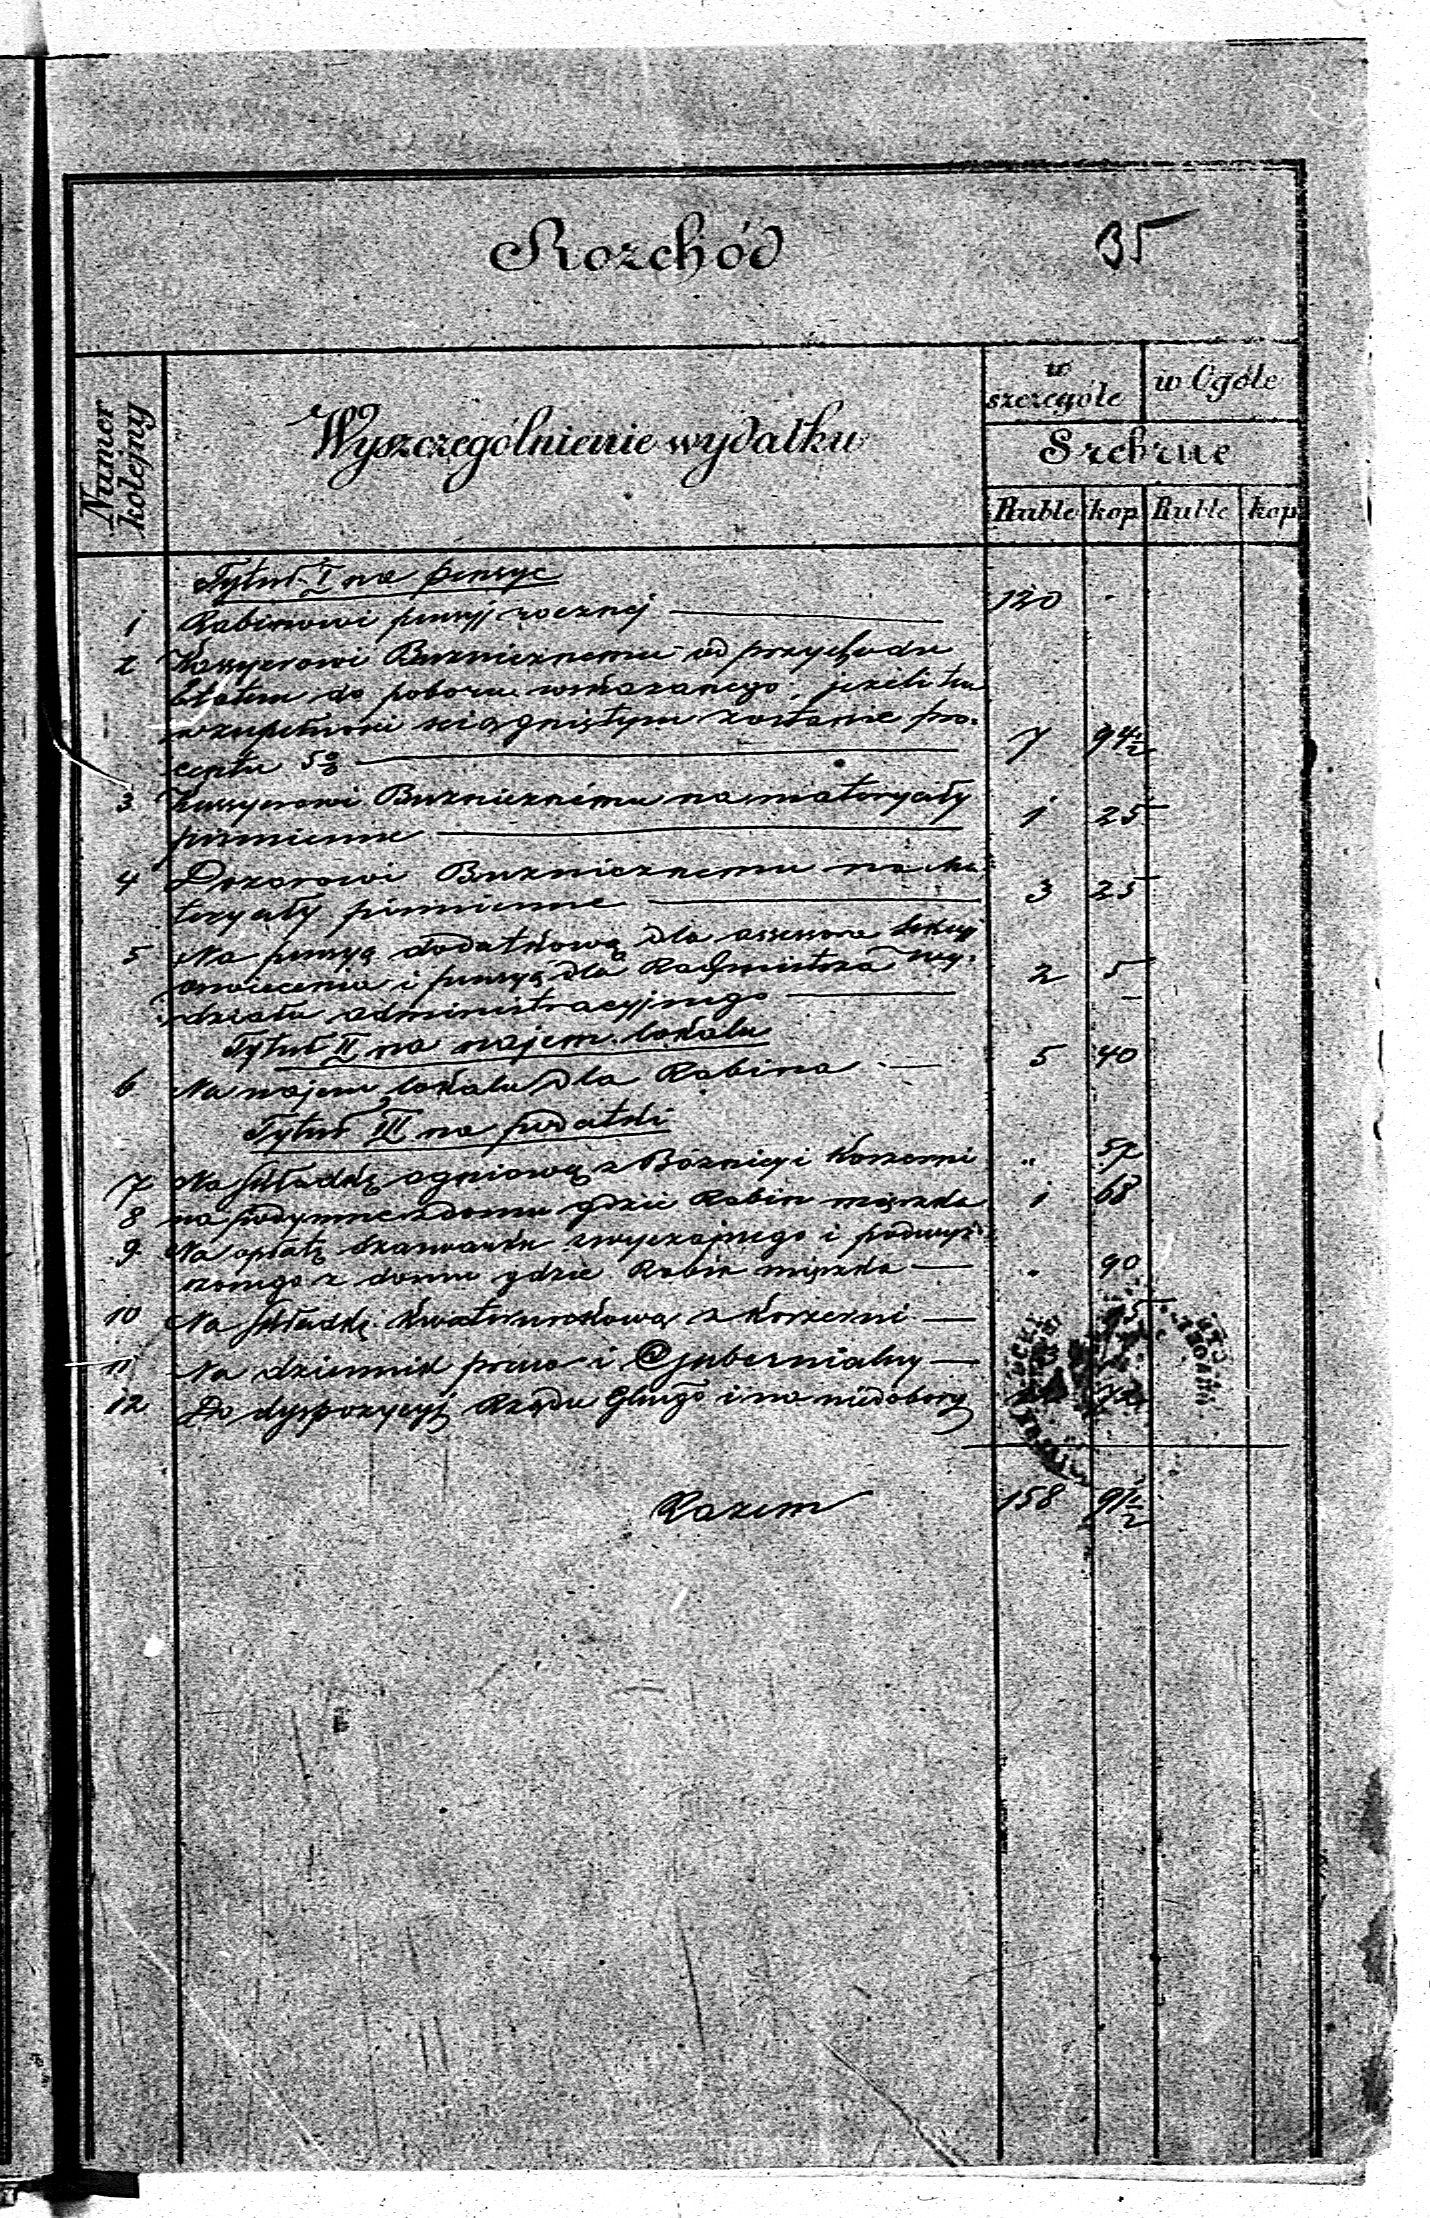 Rozchód
35
Numer kolejny
Wyszczególnienie wydatku
w szczególe
w Ogóle
Srebrne
Ruble kop Ruble kop
Tytuł I na pensye
1 Rabinowi pensyj rocznej 120 -
2 Kassyerowi Bużnicznemu od przychodu
etatem do poboru wskazanego, jeżeli ten
w zupełności sciągniętym zostanie pro-
centu 5% 7 94½
3 Kassyerowi Bużnicznemu na materyały
piśmienne 1 25
4 Dozorowi Bużnicznemu na ma-
teryały piśmienne 3 25
5 Na pensyą dodatkową dla assessora Sekcyj
oswiecenia i pensyą dla Rachmistrza Wy-
działu administracyjnego 2 5
Tytuł II na najem lokalu
6 Na najem lokalu dla Rabina 5 40
Tytuł III na podatki
7 Na składkę ogniową z Bóżnicy i Koszerni " 52
8 na podymne z domu gdzie Rabin mięszka 1 68
9 Na opłatę szarwarku zwyczajnego i podwyż-
szonego z domu gdzie Rabin mięszka " 90
10 Na składkę kwaterunkową z Koszerni
11 Na dziennik praw i Gubernialny
12 Do dyspozycyj Rządu Glnego i na niedobory
Razem 158 91½